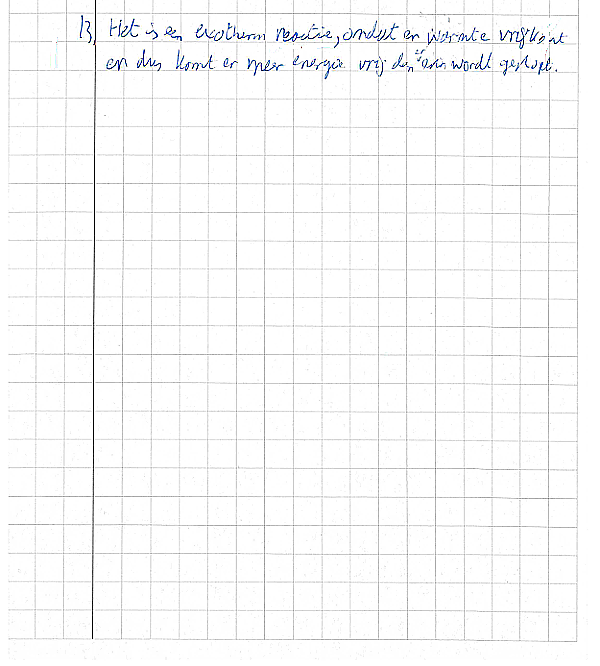 13, Het is een exotherm reactie, omdat er warmte vrijkomt
en dus komt er meer energie vrij dan er in wordt gestopt.